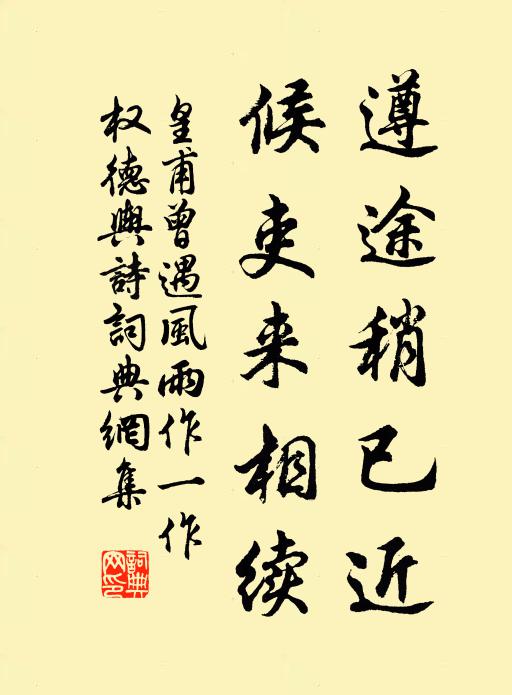 遵途稍已近
候吏来相续
皇甫曾遇風雨作一作
权德輿詩詞典網集
詞典网印